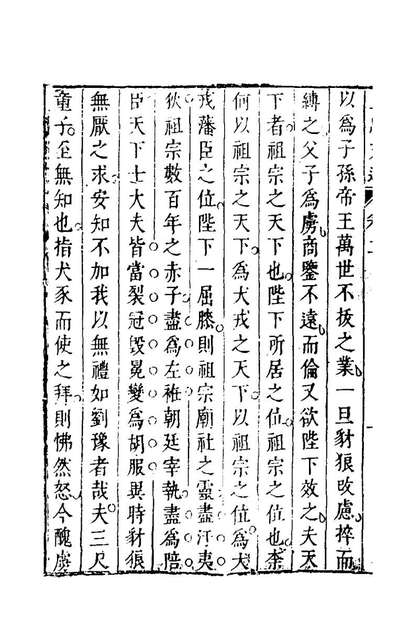 以爲子孫帝王萬世不拔之業一旦豺狼改慮捽而
縛之父子爲虜商鑒不遠而倫又欲陛下效之夫天
下者祖宗之天下也陛下所居之位祖宗之位也柰
何以祖宗之天下爲犬戎之天下以祖宗之位爲犬
戎藩臣之位陛下一屈膝則祖宗廟社之靈盡汙夷
狄祖宗數百年之赤子盡爲左袵朝廷宰執盡爲陪
臣天下士大夫皆當裂冠毀冕變爲胡服異時豺狼
無厭之求安知不加我以無禮如劉豫者哉夫三尺
童子至無知也指犬豕而使之拜則怫然怒今醜虜